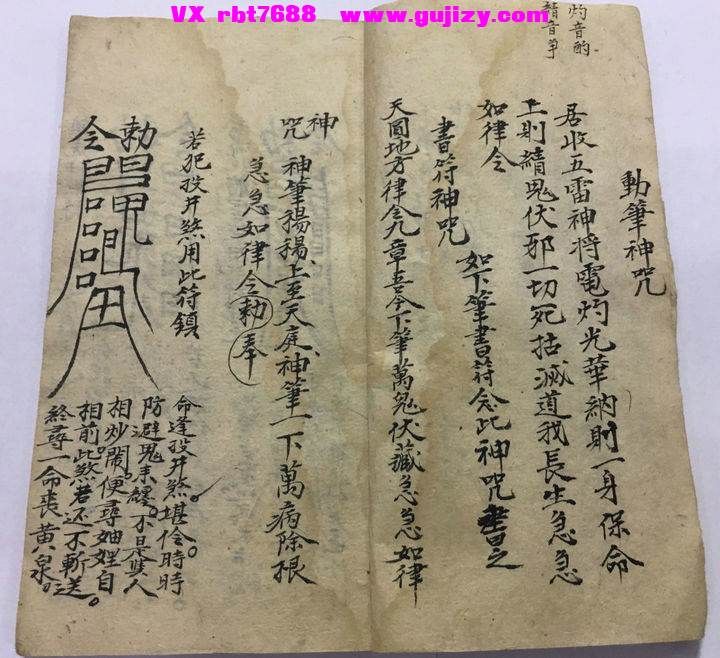 VX rbt7688 www.gujizy.com
灼音酌
精音爭
動筆神咒
居收五雷神将電灼光華納則一身保命
上則縛鬼伏邪一切死活滅道我長生急急
如律令
如下筆書符念此神咒書之
書符神咒
天圓地方律令九章吾今下筆萬鬼伏藏急急如律
神咒
神筆揚揚上至天庭神筆一下萬病除根
急急如律令勅奉
若犯投井煞用此符鎮
勅令
命逢投井煞堪伶時時
防避鬼來 不是雙人
相炒鬧便尋妯娌自
相前此煞若还不斬送
終尋一命喪黃泉